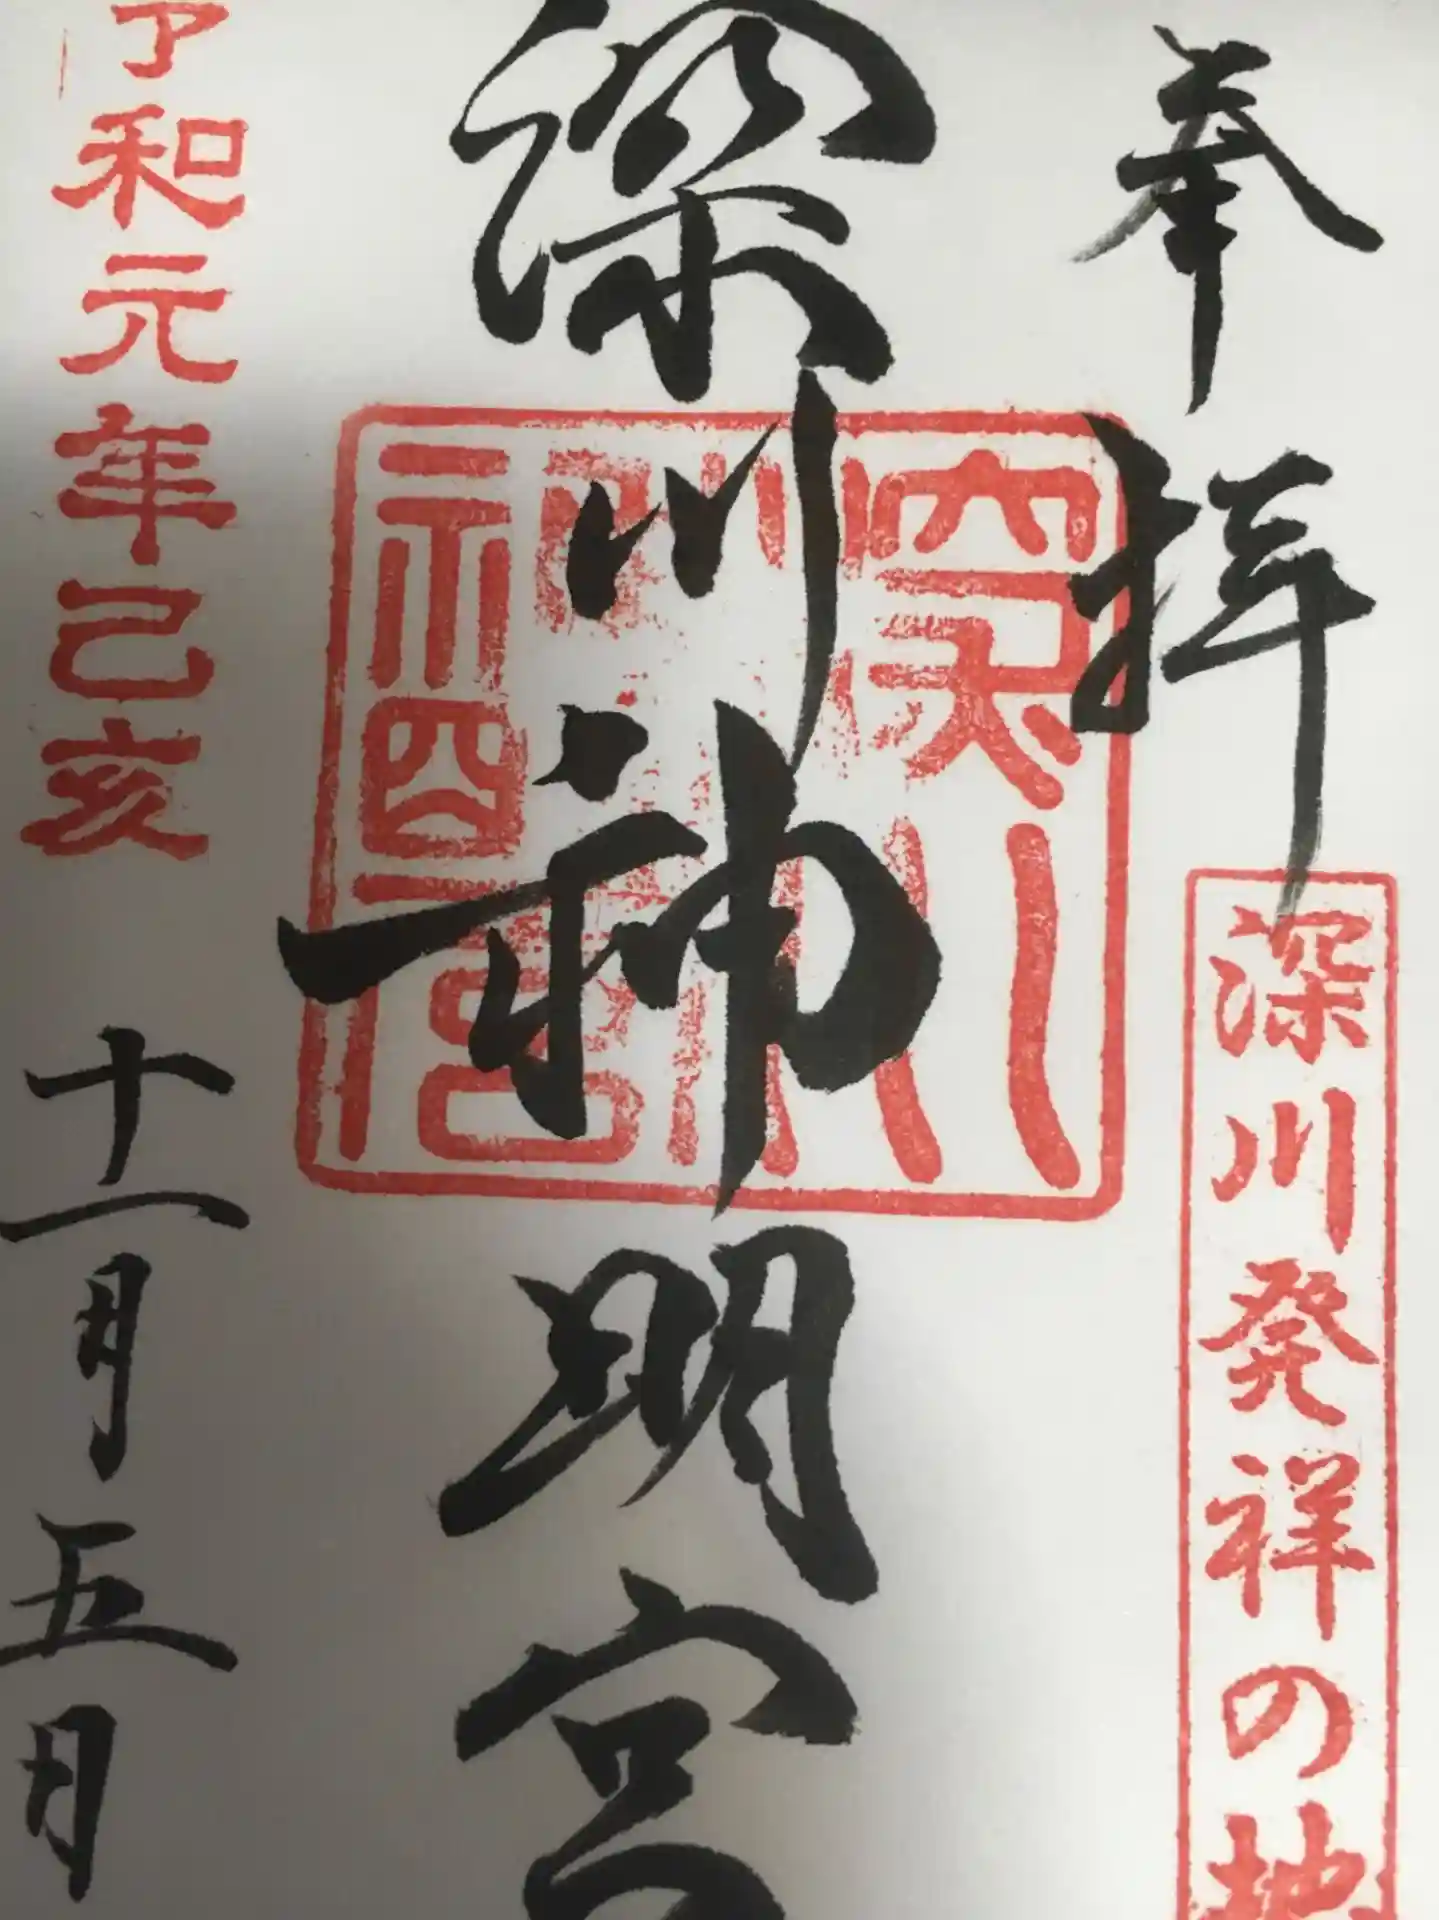 奉拝
深川発祥の地
深川神明宮
令和元年己亥
十一月五日